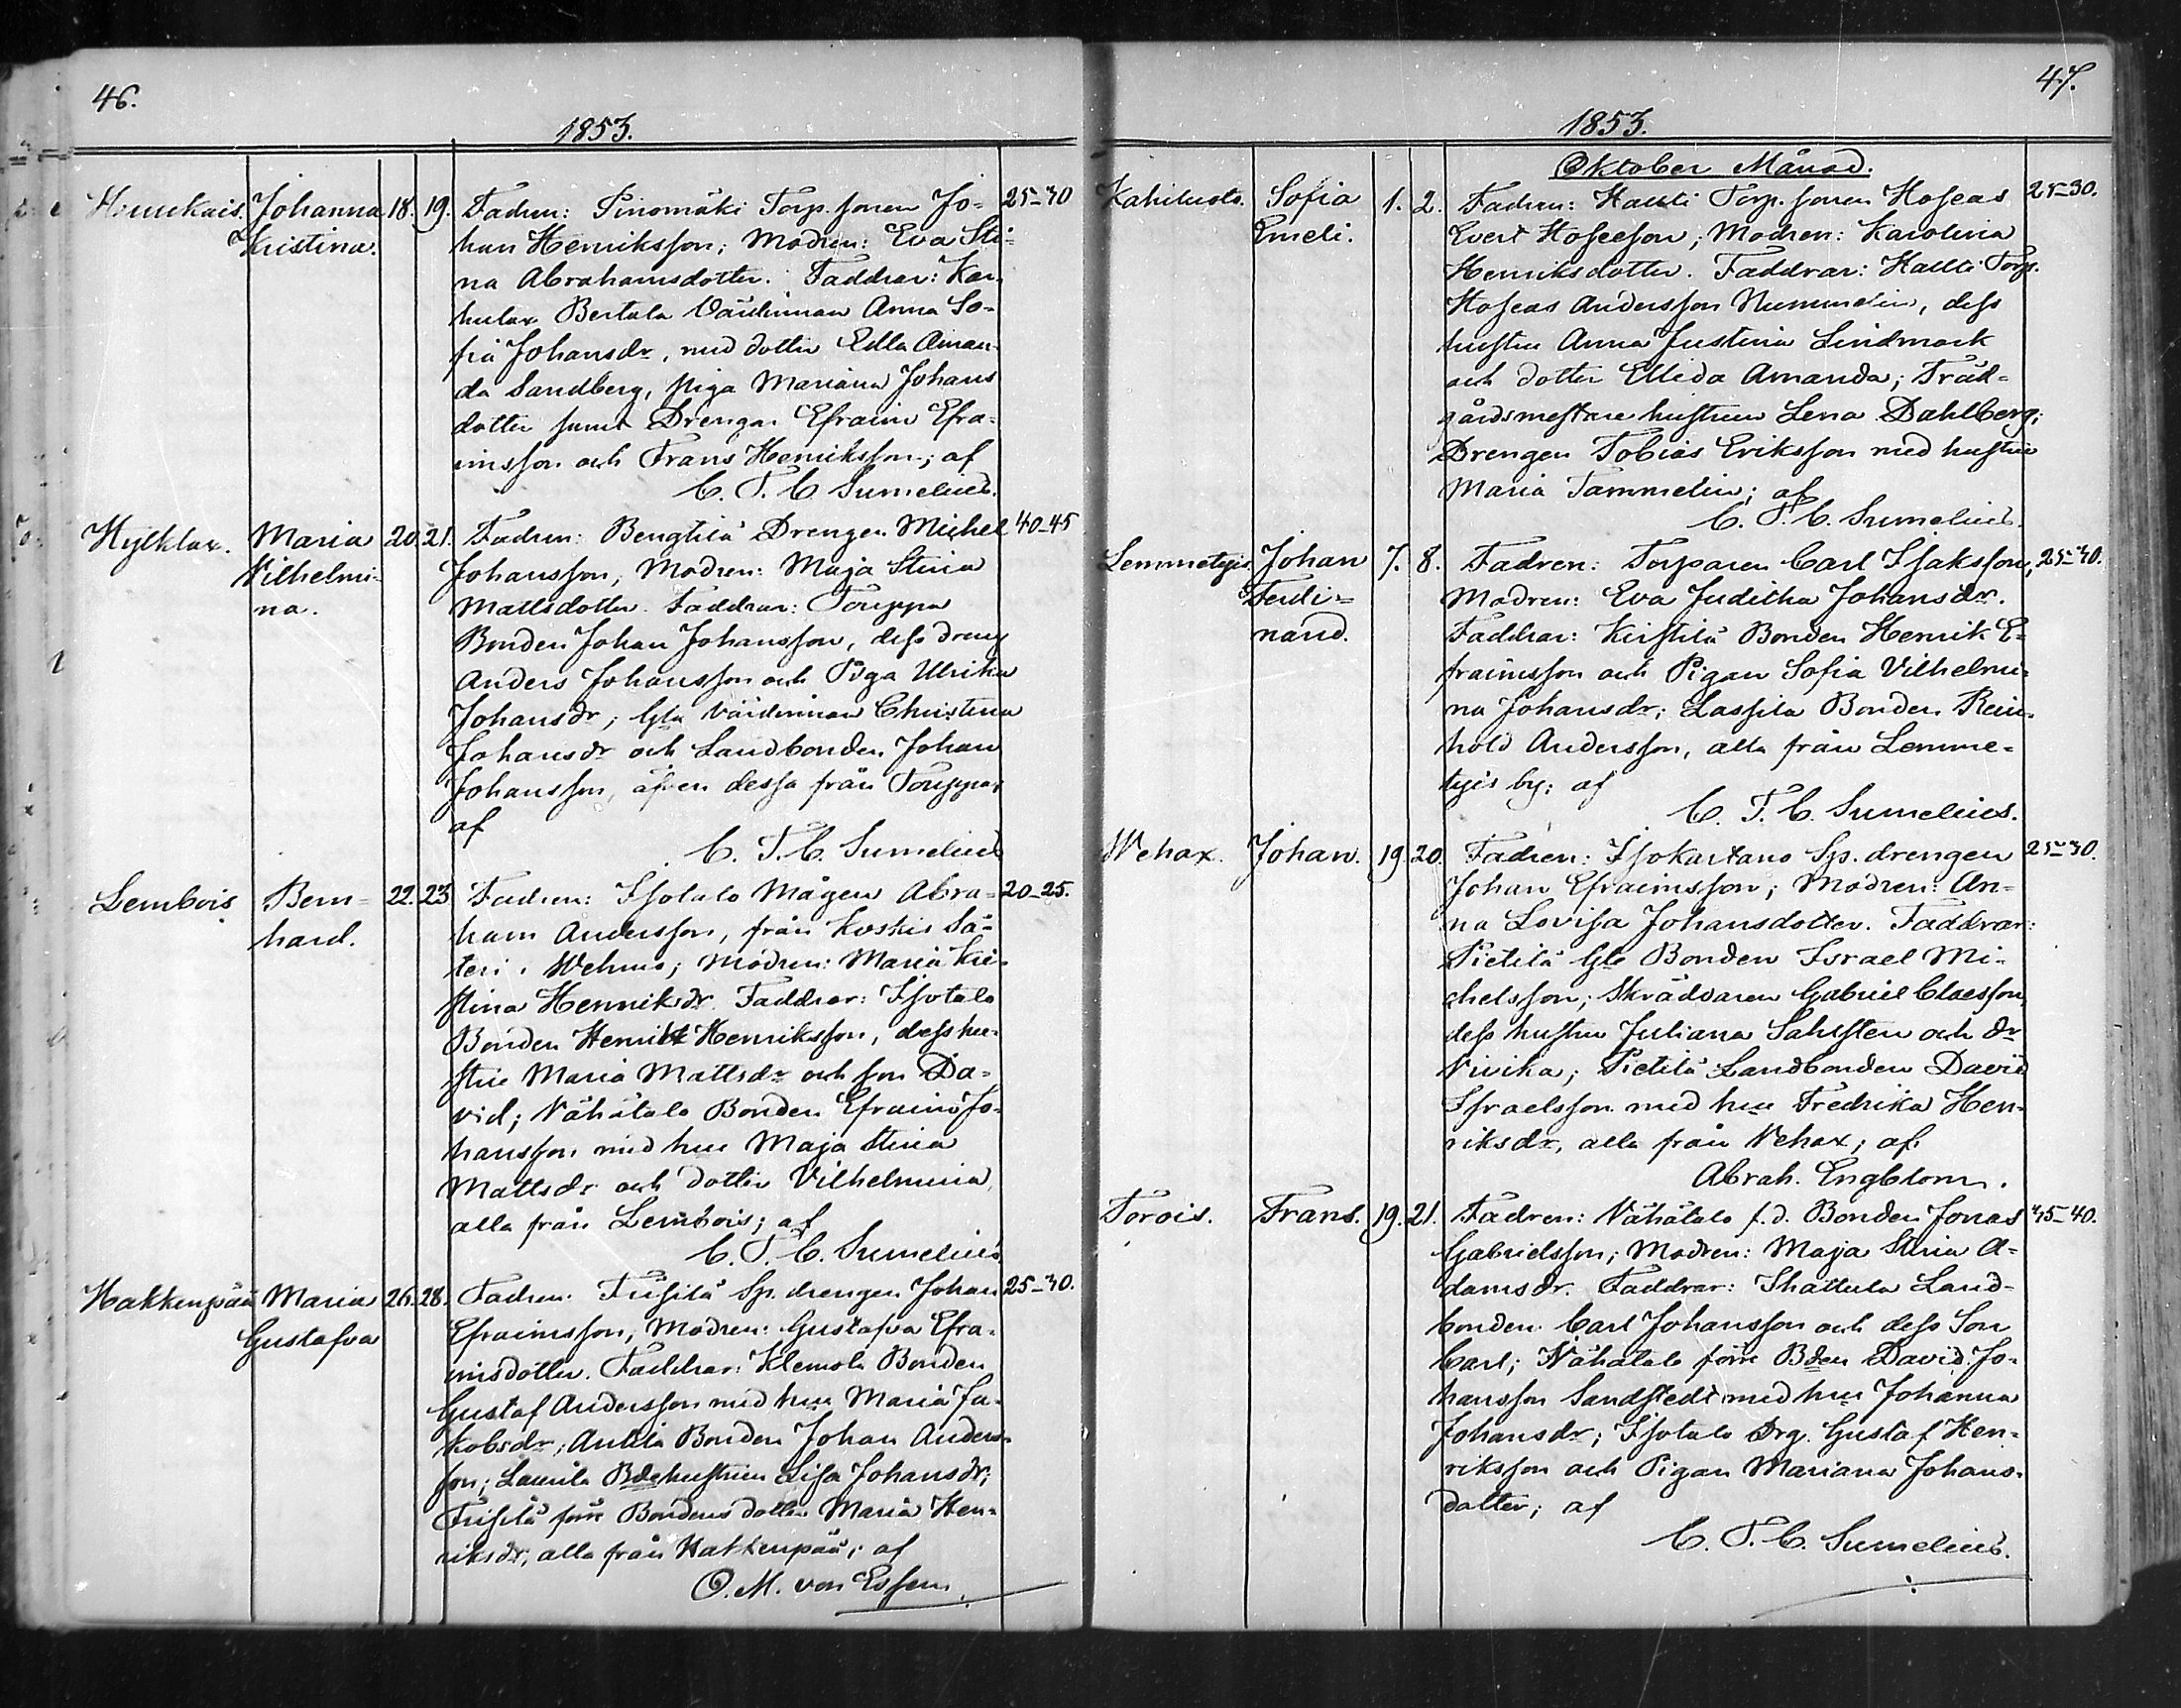 46.
1853.
Himmkais. Johanna 18. 19. Fadren: Pinomäki Torp. sonen Jo= 25-30
Kristina. han Henriksson; Modren: Eva Sti=
na Abrahamsdotter. Faddrar: Kar=
hula Bertala Värdinnan Anna So=
fia Johansdr, med dotter Edla Aman=
da Sandberg, piga Mariana Johans
dotter samt Drengar Efraim Efra=
imsson och Frans Henriksson; af
C. T. C. Sumelius.
Hylklax. Maria 20. 21. Fadren: Bengtilä Drengen Michel 40-45
Vilhelmi= Johansson, Modren: Maja Stina
na. Mattsdotter. Faddrar: Touppa
Bonden Johan Johansson, dess dreng
Anders Johansson och Piga Ulrika
Johansdr; Gla värdinnan Christina
Johansdr och Landbonden Johan
Johansson, äfven dessa från Touppa;
af
C. T. C. Sumelius
Lembois Bern= 22. 23 Fadren: Isotalo Mågen Abra= 20-25.
hard. ham Andersson, från Koskis Sä=
teri i Wehmo; Modren: Maria Kri=
stina Henriksdr. Faddrar: Isotalo
Bonden Henrik Henriksson, dess hu=
stru Maria Mattsdr och son Da=
vid; Vähätalo Bonden Efraim Jo=
hansson med hru Maja Stina
Mattsdr och dotter Vilhelmina,
alla från Lembois; af
C. T. C. Sumelius.
Hakkenpää Maria 26. 28. Fadren: Frisilä Sp. drengen Johan 25-30.
Gustafva Efraimsson, Modren: Gustafva Efra=
imsdotter. Faddrar: Klemola Bonden
Gustaf Andersson med hru Maria Ja=
kobsdr; Anttila Bonden Johan Anders=
son; Laurila Bdehustrun Lisa Johansdr;
Frisilä förre Bondens dotter Maria Hen=
riksdr, alla från Hakkenpää; af
O. M. von Essen.
47.
1853.
Oktober Månad.
Kahiluoto. Sofia 1. 2. Fadren: Haltti Torp. sonen Hoseas 25-30.
Emeli. Evert Hoseeson; Modren: Karolina
Henriksdotter. Faddrar: Haltti Torp.
Hoseas Andersson Nummelin, dess
hustru Anna Justina Lindmark
och dotter Ellida Amanda; Träd=
gårdsmestare hustrun Lena Dahlberg;
Drengen Tobias Eriksson med hustru
Maria Tammelin; af
C. T. C. Sumelius.
Lemmetyis. Johan 7. 8. Fadren: Torparen Carl Isaksson, 25-30.
Ferdi= Modren: Eva Juditha Johansdr.
nand. Faddrar: Kirstilä Bonden Henrik E=
fraimsson och Pigan Sofia Vilhelmi=
na Johansdr; Lassila Bonden Rein=
hold Andersson, alla från Lemme=
tyis by; af
C. T. C. Sumelius.
Wehax. Johan. 19 20. Fadren: Isokartano Sp. drengen 25-30.
Johan Efraimsson; Modren: An=
na Lovisa Johansdotter. Faddrar:
Pietilä Gle Bonden Israel Mi=
chelsson; Skräddaren Gabriel Claesson,
dess hustru Juliana Sahlsten och dr
Vivika; Pietilä Landbonden David
Israelsson med hru Fredrika Hen=
riksdr, alla från Vehax; af
Abrah. Engblom.
Torois. Frans. 19. 21. Fadren: Vähätalo f.d. Bonden Jonas 45-40.
Gabrielsson; Modren: Maja Stina A=
damsdr. Faddrar: Skattula Land=
bonden Carl Johansson och dess Son
Carl; Vähätalo förre Bden David Jo=
hansson Sandstedt med hru Johanna
Johansdr; Isotalo Drg. Gustaf Hen=
riksson och Pigan Mariana Johans=
dotter; af
C. T. C. Sumelius.